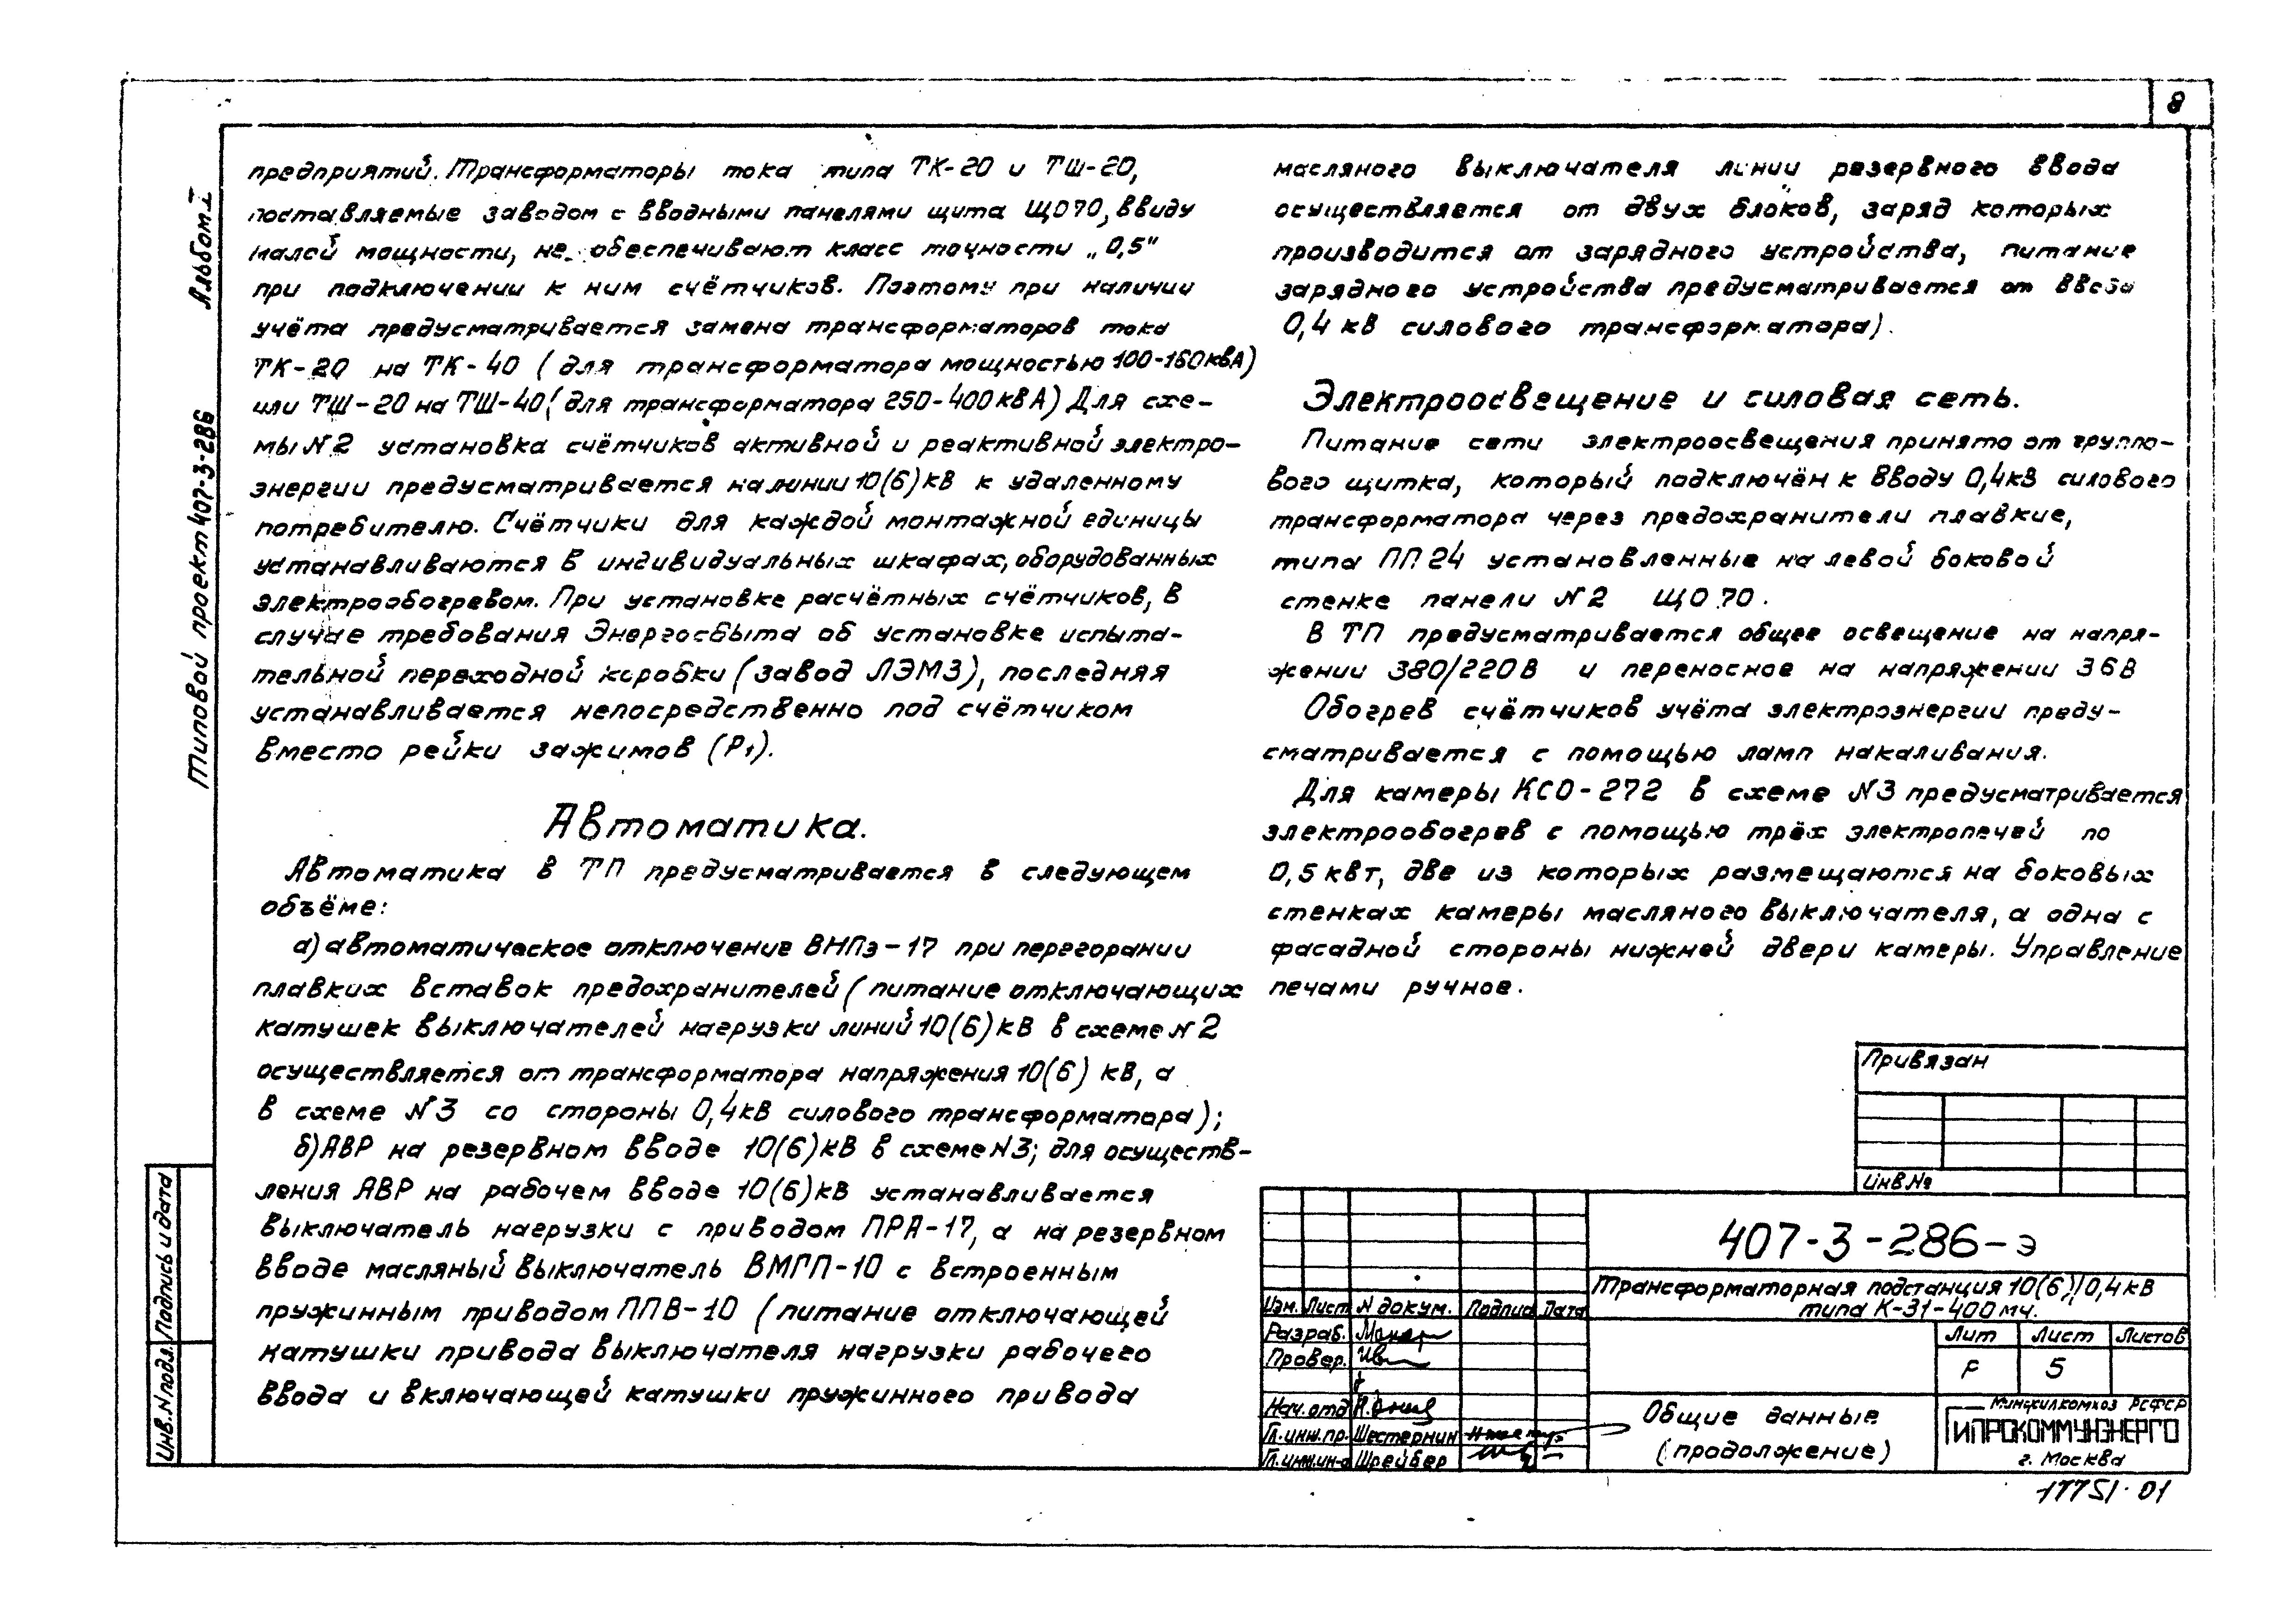 8
Альбом I
Типовой проект 407-3-286
предприятий. Трансформаторы тока типа ТК-20 и ТШ-20,
поставляемые заводом с вводными панелями щита ЩО70, ввиду
малой мощности, не обеспечивают класс точности „0,5"
при подключении к ним счётчиков. Поэтому при наличии
учёта предусматривается замена трансформаторов тока
ТК-20 на ТК-40 (для трансформатора мощностью 100-160 кВА)
или ТШ-20 на ТШ-40 (для трансформатора 250-400 кВА) Для схе-
мы N2 установка счётчиков активной и реактивной электро-
энергии предусматривается на линии 10(6) кВ к удаленному
потребителю. Счётчики для каждой монтажной единицы
устанавливаются в индивидуальных шкафах, оборудованных
электрообогревом. При установке расчётных счётчиков, в
случае требования Энергосбыта об установке испыта-
тельной переходной коробки (завод ЛЭМЗ), последняя
устанавливается непосредственно под счётчиком
вместо рейки зажимов (Р1).
Автоматика.
Автоматика в ТП предусматривается в следующем
объёме:
а) автоматическое отключение ВНПз-17 при перегорании
плавких вставок предохранителей (питание отключающих
катушек выключателей нагрузки линий 10(6) кВ в схеме N2
осуществляется от трансформатора напряжения 10(6) кВ, а
в схеме N3 со стороны 0,4 кВ силового трансформатора);
б) АВР на резервном вводе 10(6) кВ в схеме N3; для осуществ-
ления АВР на рабочем вводе 10(6) кВ устанавливается
выключатель нагрузки с приводом ПРА-17, а на резервном
вводе масляный выключатель ВМГП-10 с встроенным
пружинным приводом ППВ-10 (питание отключающей
катушки привода выключателя нагрузки рабочего
ввода и включающей катушки пружинного привода
масляного выключателя линии резервного ввода
осуществляется от двух блоков, заряд которых
производится от зарядного устройства, питание
зарядного устройства предусматривается от ввода
0,4 кВ силового трансформатора).
Электроосвещение и силовая сеть.
Питание сети электроосвещения принято от группо-
вого щитка, который подключён к вводу 0,4 кВ силового
трансформатора через предохранители плавкие,
типа ПП24 установленные на левой боковой
стенке панели N2 ЩО 70.
В ТП предусматривается общее освещение на напря-
жении 380/220 В и переносное на напряжении 36 В
Обогрев счётчиков учёта электроэнергии преду-
сматривается с помощью ламп накаливания.
Для камеры КСО-272 в схеме N3 предусматривается
электрообогрев с помощью трёх электропечей по
0,5 квт, две из которых размещаются на боковых
стенках камеры масляного выключателя, а одна с
фасадной стороны нижней двери камеры. Управление
печами ручное.
Привязан
Инв.№
407-3-286-э
Трансформаторная подстанция 10(6)/0,4 кВ
типа К-31-400 мч.
Изм. Лист N докум. Подпис Дата
Разраб.
Провер.
Нач. отд
Гл. инж. пр. Шестернин
Гл. инж. ин-а Шрейбер
Лит Лист Листов
Р 5
Общие данные
(продолжение)
Минжилкомхоз РСФСР
ГИПРОКОММУНЭНЕРГО
г. Москва
17751-01
Подпись и дата
Инв. N подл.